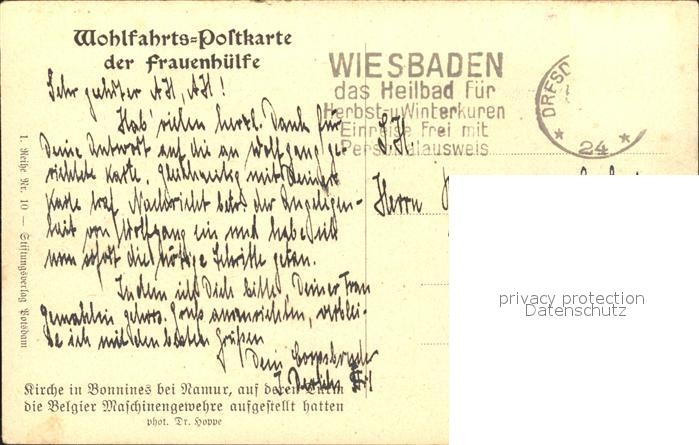 Wohlfahrts-Postkarte
der Frauenhülfe
WIESBADEN
das Heilbad für
Herbst-u.Winterkuren
Einreise frei mit
Personalausweis
DRESD
24
Sehr geehrter AH, AH!
Hab' vielen herzl. Dank für
Deine Antwort auf die an Wolfgang ge-
richtete Karte. Gleichzeitig mit Deiner
Karte traf Nachricht betr. der Angelegen-
heit von Wolfgang ein und habe ich
nun sofort die nötigen Schritte getan.
Indem ich Dich bitte, Deiner Frau
Gemahlin gehors. Gruß auszurichten, verblei-
be ich mit den besten Grüßen
Dein Corpsbruder
S.H.
Herrn
1. Reihe Nr. 10 — Stiftungsverlag Potsdam
Kirche in Bonnines bei Namur, auf deren Turm
die Belgier Maschinengewehre aufgestellt hatten
phot. Dr. Hoppe
privacy protection
Datenschutz